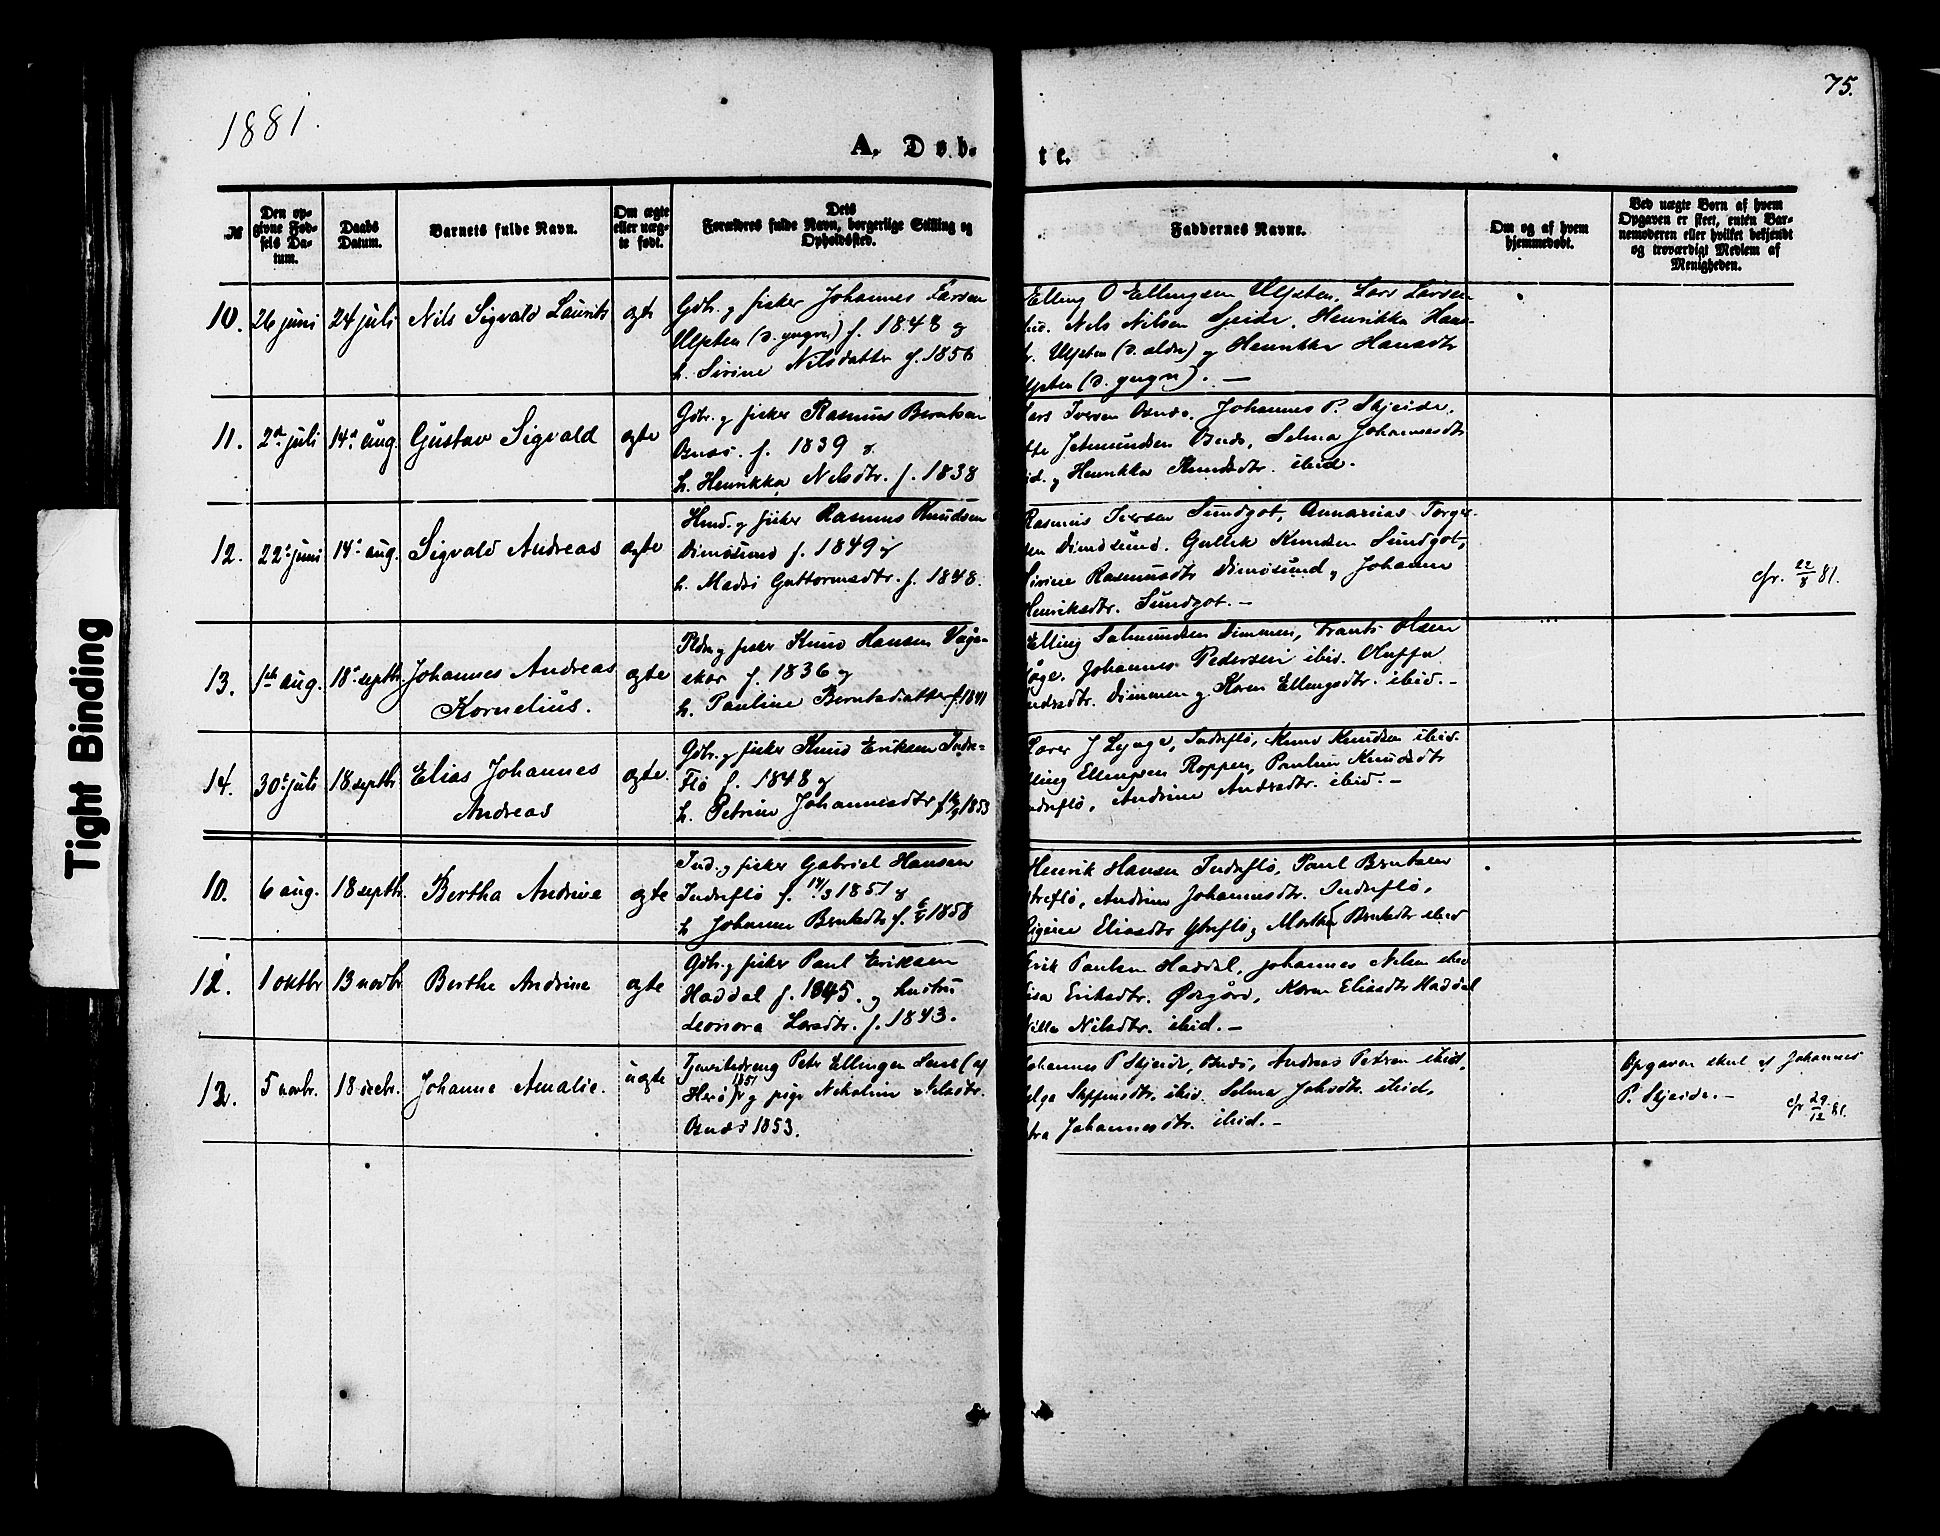 75.
1881.
A. Døb-
te.
№
Den op-
givne Fød-
sels Da-
tum.
Daabs
Datum.
Barnets fulde Navn.
Om ægte
eller uæg-
te født.
Dets
Forældres fulde Navn, borgerlige Stilling og
Opholdssted.
Faddernes Navne.
Om og af hvem
hjemmedøbt.
Ved uægte Børn af hvem
Opgaven er skeet, enten Bar-
nemoderen eller hvilket bekjendt
og troværdigt Medlem af
Menigheden.
10. 26 juni 24 juli Nils Sigvald Laurits ægte
Gdbr. og fisker Johannes Larsen
Ulsten (d. yngre) f. 1848 og
h. Sirine Nilsdatter f. 1856
Elling O Ellingsen Ulsten, Lars Larsen
ibid. Nils Nilsen Skeide, Henrikka Hans-
Ulsten (d. ældre) og Henrikka Hansdtr
Ulsten (d. yngre). —
11. 2d juli 14d aug. Gustav Sigvald ægte
Gdbr. og fisker Rasmus Berntsen
Osnes. f. 1839 og
h. Henrikka Nilsdtr. f. 1838
Lars Iversen Osnes, Johannes P. Skjeide,
Jetmundsen Osnes, Selma Johannesdtr
ibid. og Henrikka Knudsdtr. ibid.
12. 22d juni 14d aug. Sigvald Andreas ægte
Husm. og fisker Rasmus Knudsen
Dimøsund f. 1849 og
h. Madsi Guttormsdtr. f. 1848.
Rasmus Iversen Sundgot, Annanias Torger-
sen Dimøsund. Gullik Knudsen Sundgot,
Sirine Rasmusdtr Dimøsund og Johanne
Henriksdtr. Sundgot. —
cfr. 22/8 81.
13. 1ste aug. 18d septbr Johannes Andreas
Kornelius. ægte
og fisker Knud Hansen Vaage-
skar f. 1836 og
h. Pauline Berntsdatter f. 1841
Elling Salmundsen Dimmen, Frants Olsen
Johannes Pedersen ibid. Oluffa
Dimmen og Karen Ellingsdtr. ibid. —
14. 30d juli 18 septbr Elias Johannes
Andreas ægte.
Gdbr. og fisker Knud Eriksen Indre-
Flø f. 1848 og
h. Petrine Johannesdtr f. 1853
J Lynge, Indreflø, Knud Knudsen ibid.
Elling Ellingsen Roppen, Pauline Knudsdtr
Indreflø, Andrine Andersdtr. ibid. —
10. 6 aug. 18 septbr. Bertha Andrine ægte
Ind. og fisker Gabriel Hansen
Indreflø f. 14/3 1851 og
h Johanne Berntsdtr f. 1858
Henrik Hansen Indreflø, Paul Berntsen
Ytreflø, Andrine Johannesdtr. Indreflø,
Eliasdtr Ytreflø, Martha Berntsdtr ibid
12. 1 oktbr 13 novbr Berthe Andrine ægte
Gdbr. og fisker Paul Eriksen
Haddal f. 1845. og hustru
Leonora Larsdtr. f. 1843.
Erik Paulsen Haddal, Johannes Nilsen ibid
Eriksdtr. Øvregård, Karen Eliasdtr Haddal
Nilsdtr. ibid. —
12. 5 novbr. 18 decbr. Johanne Amalie. uægte
Tjenestedreng Peter Ellingsen (af
Herø f. 1851 og pige Nikoline Nilsdtr.
Osnes 1853.
Johannes P Skjeide, Osnes, Andreas Petersen ibid,
Helga Steffensdtr. ibid. Selma Johsdtr. ibid,
Petra Johannesdtr. ibid. —
Opgaven skeet af Johannes
P. Skjeide. —
cfr 29/12 81.
Tight Binding